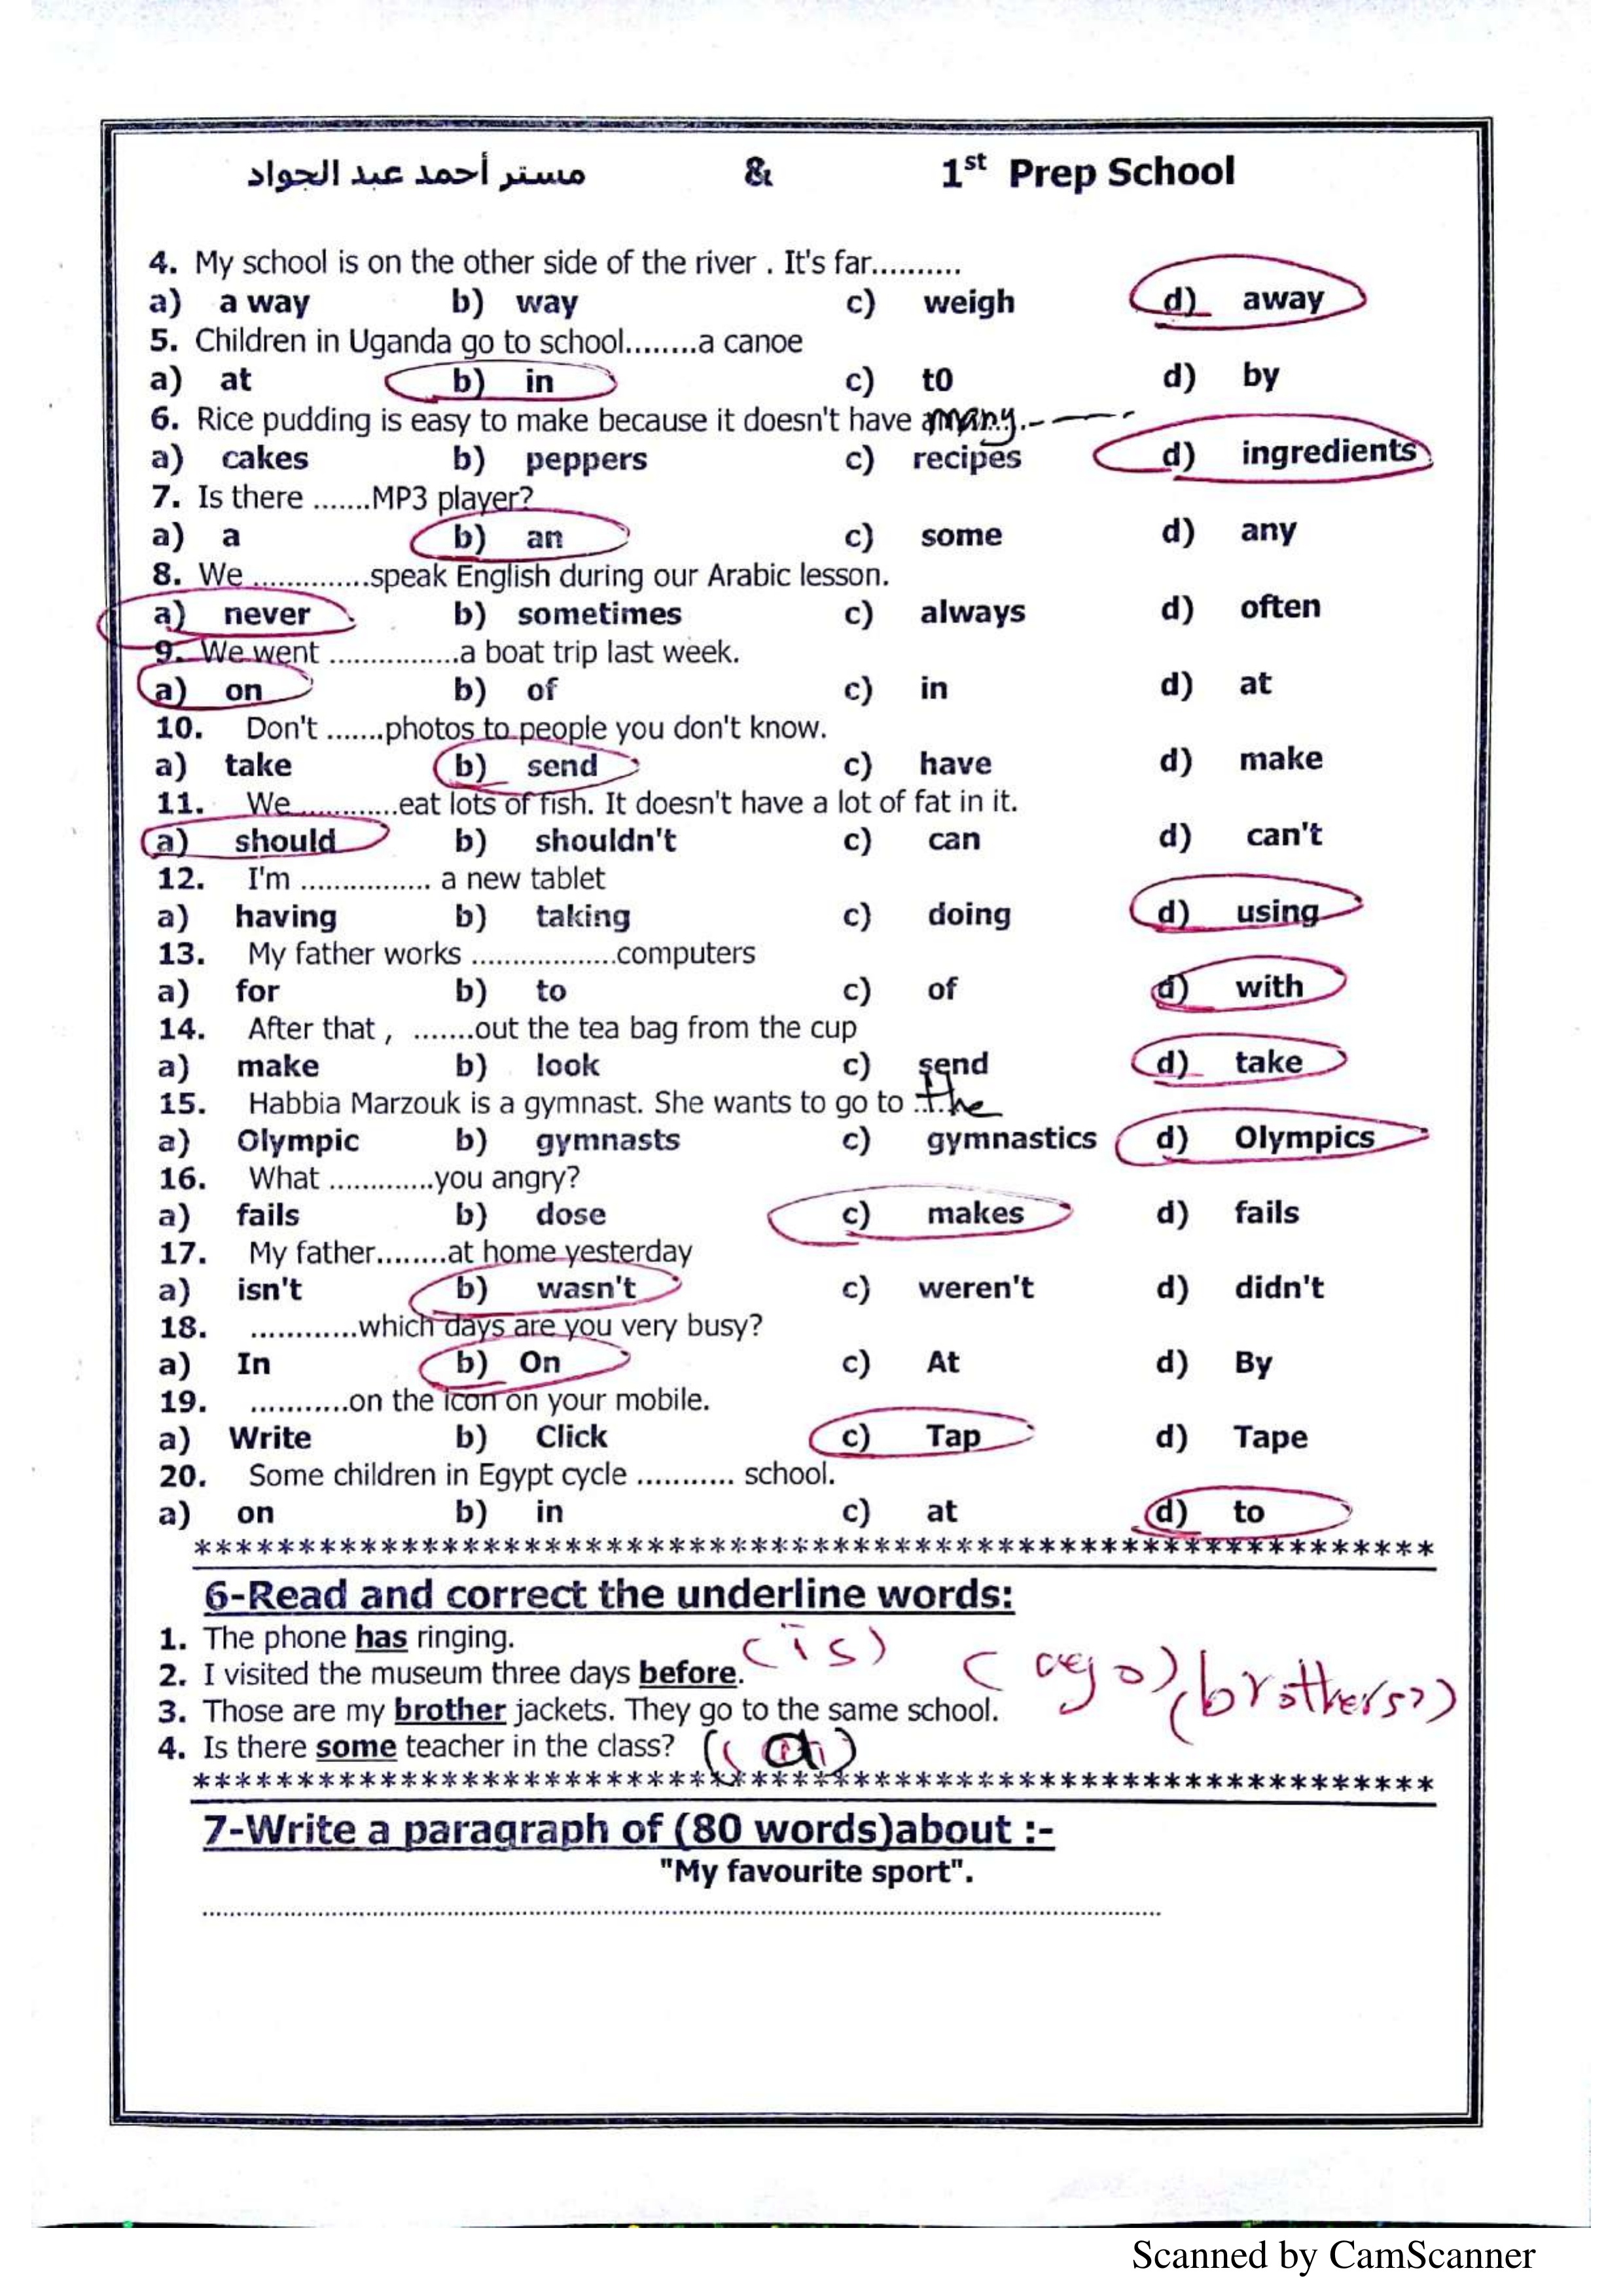 مستر أحمد عبد الجواد & 1st Prep School
4. My school is on the other side of the river . It's far..........
a) a way b) way c) weigh d) away
5. Children in Uganda go to school........a canoe
a) at b) in c) t0 d) by
6. Rice pudding is easy to make because it doesn't have many
a) cakes b) peppers c) recipes d) ingredients
7. Is there .......MP3 player?
a) a b) an c) some d) any
8. We ..............speak English during our Arabic lesson.
a) never b) sometimes c) always d) often
9. We went ................a boat trip last week.
a) on b) of c) in d) at
10. Don't .......photos to people you don't know.
a) take b) send c) have d) make
11. We............eat lots of fish. It doesn't have a lot of fat in it.
a) should b) shouldn't c) can d) can't
12. I'm ................ a new tablet
a) having b) taking c) doing d) using
13. My father works ..................computers
a) for b) to c) of d) with
14. After that , .......out the tea bag from the cup
a) make b) look c) send d) take
15. Habbia Marzouk is a gymnast. She wants to go to the
a) Olympic b) gymnasts c) gymnastics d) Olympics
16. What .............you angry?
a) fails b) dose c) makes d) fails
17. My father........at home yesterday
a) isn't b) wasn't c) weren't d) didn't
18. .............which days are you very busy?
a) In b) On c) At d) By
19. ............on the icon on your mobile.
a) Write b) Click c) Tap d) Tape
20. Some children in Egypt cycle ............ school.
a) on b) in c) at d) to
************************************************************
6-Read and correct the underline words:
1. The phone has ringing. (is)
2. I visited the museum three days before. (ago)
3. Those are my brother jackets. They go to the same school. (brothers')
4. Is there some teacher in the class? (a)
************************************************************
7-Write a paragraph of (80 words)about :-
"My favourite sport".
................................................................................
Scanned by CamScanner